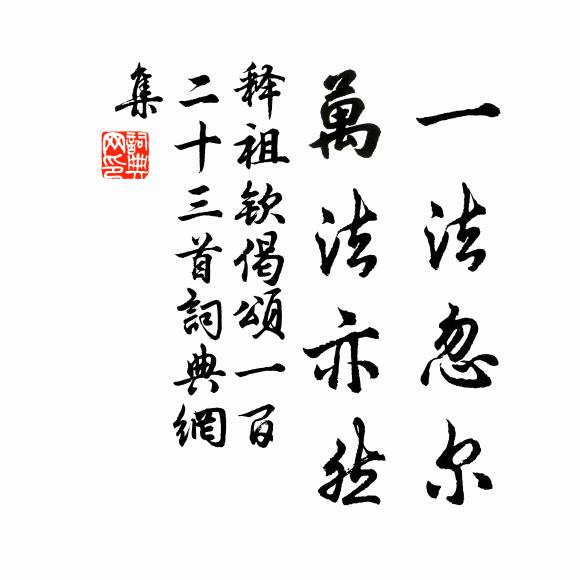 一法忽尔
萬法亦然
释祖钦偈頌一百
二十三首詞典網
集
詞典網印